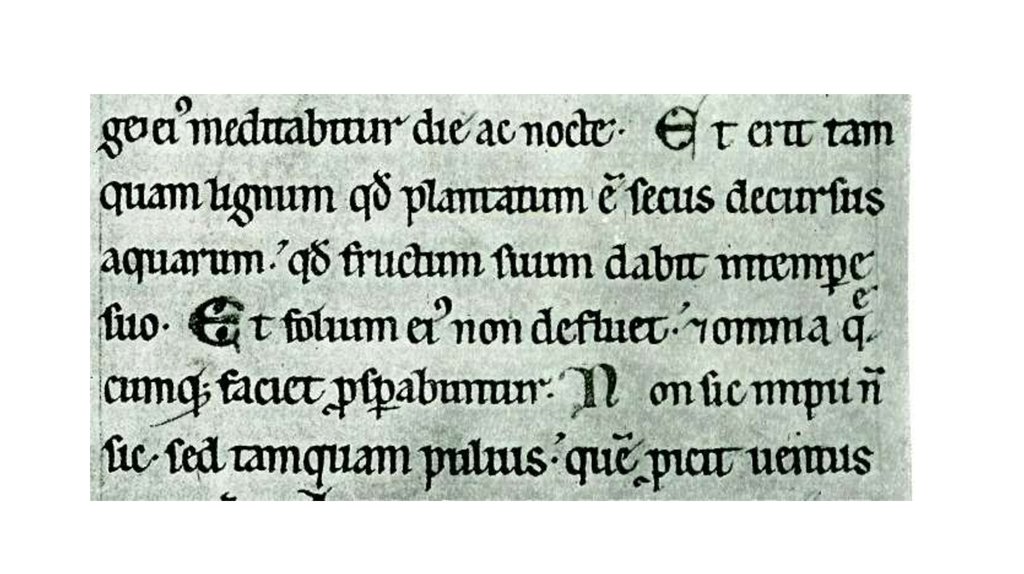 ge ei᾽ meditabitur die ac nocte· Et erit tam
quam lignum qđ plantatum ẽ secus decursus
aquarum·᾽ qđ fructum suum dabit intempꝑe
suo· Et folium ei᾽ non defluet·᾽ ⁊ omnia qͤ
cumqꝫ faciet ꝓsꝑabuntur· Non sic impii ñ
sic· sed tamquam puluis·᾽ quẽ ꝓicit uentus